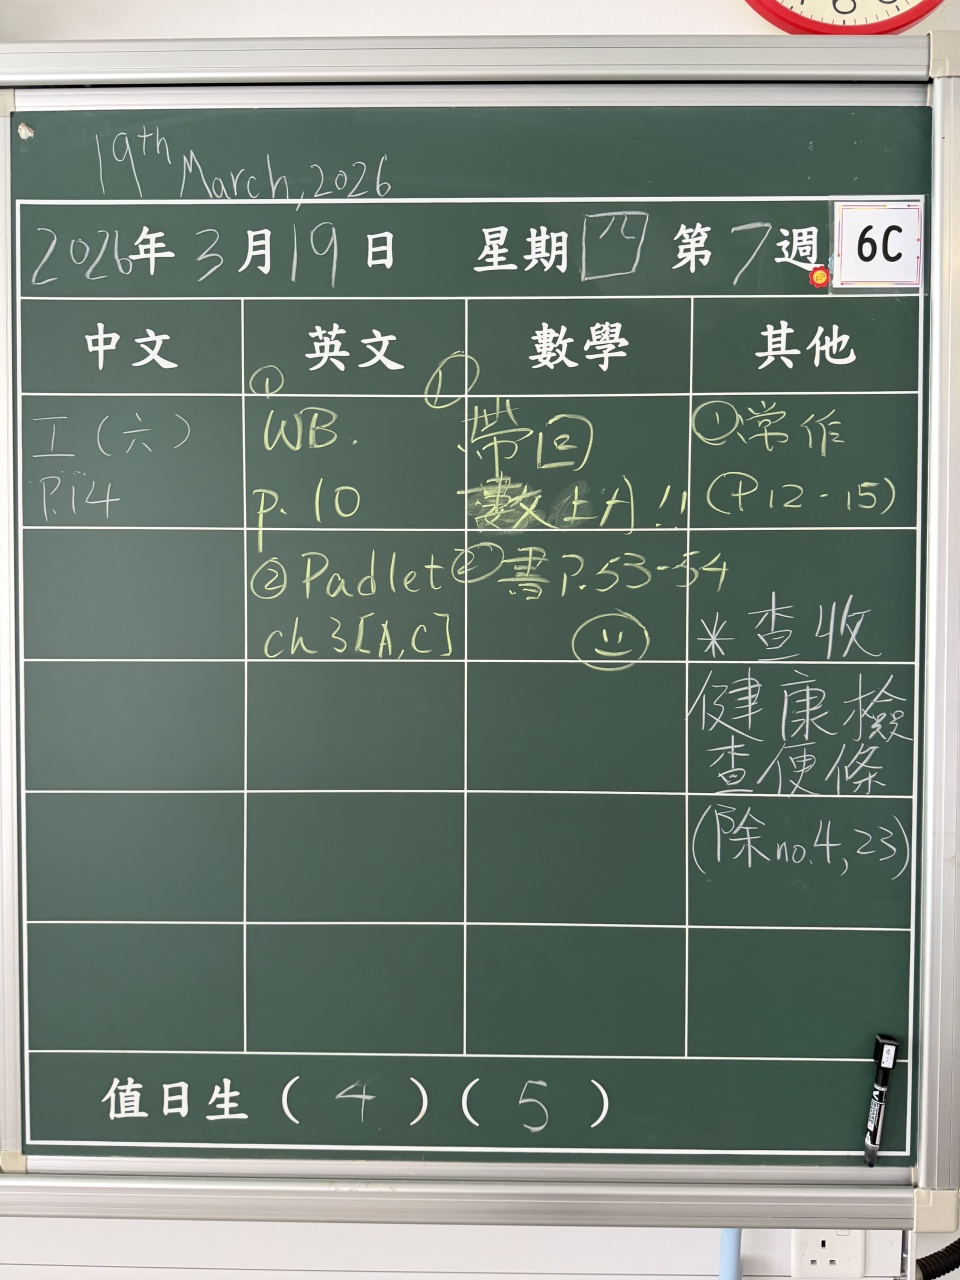 19th March, 2026
2026年3月19日 星期四 第7週 6C
中文 英文 數學 其他
工(六)
P.14
① WB.
p.10
② Padlet
ch3[A,C]
① 帶回
數上A!!
② 書P.53-54
① 常作
(P12-15)
*查收
健康檢
查便條
(除no.4,23)
值日生(4)(5)